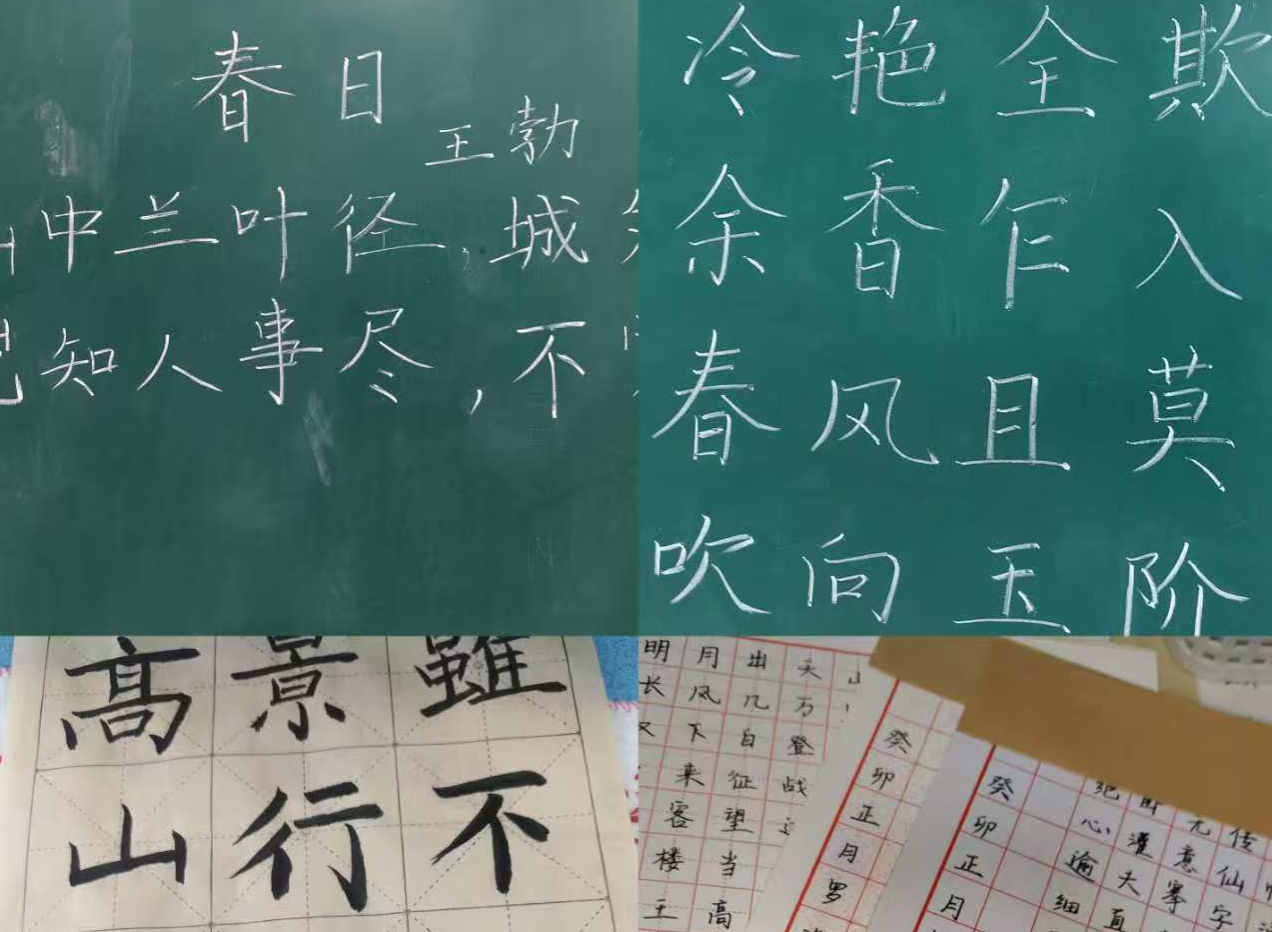 春日
王勃
中兰叶径，城
知人事尽，不
冷艳全欺
余香乍入
春风且莫
吹向玉阶
高山
景行
雖不
明月出天山
长风几万
下白登
来征战
客望
楼当
王高
癸卯正月罗
癸卯正月
绝心逾细
灌夫直
无意搴
传仙字